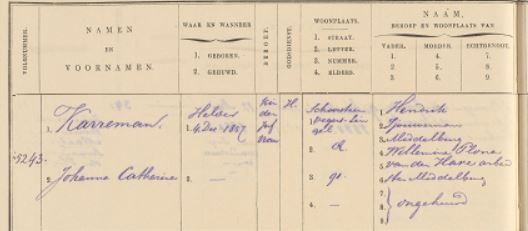 VOLGNUMMER.
NAMEN
EN
VOORNAMEN.
WAAR EN WANNEER
1. GEBOREN.
2. GEHUWD.
BEROEP.
GODSDIENST.
WOONPLAATS.
1. STRAAT.
2. LETTER.
3. NUMMER.
4. ELDERS.
NAAM,
BEROEP EN WOONPLAATS VAN
VADER. MOEDER. ECHTGENOOT.
1. 4. 7.
2. 5. 8.
3. 6. 9.
5243.
1. Karreman.
2. Johanna Catharina
1. 4 Dec 1857
2. —
Kin
den
juf
vrou
H.
1.
2. R.
3. 90.
4. —
1. Hendrik
2.
3. Middelburg
4. Willemina
5. van der Have arbed
6. Middelburg
7.
8. ongehuwd
9.